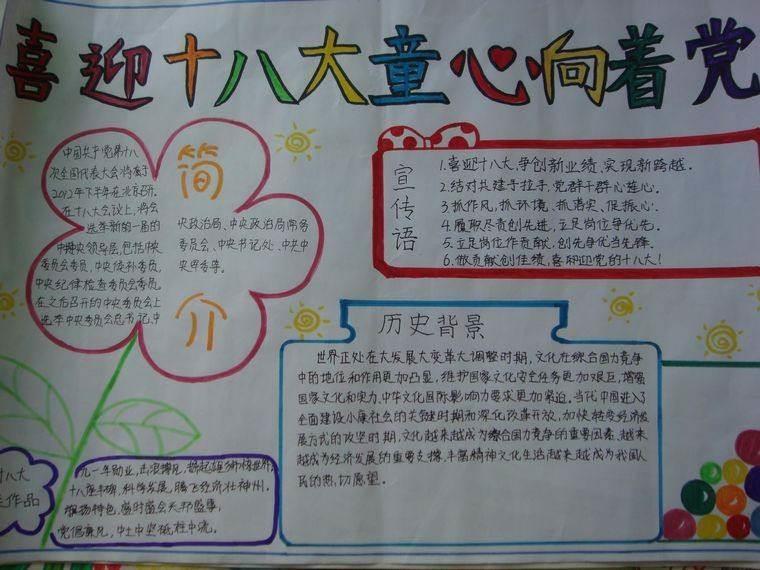 喜迎十八大童心向着党
简介
中国共产党第十八
次全国代表大会将于
2012年下半年在北京召开.
在十八大会议上,将会
选举新的一届的
中央领导层,包括中央
委员会委员,中央候补委员,
中央纪律检查委员会委员,
在之后召开的中央委员会上
选举中央委员会总书记,中
央政治局、中央政治局常务
委员会、中央书记处、中共中
央军委等。
宣传语
1.喜迎十八大,争创新业绩、实现新跨越.
2.结对共建手拉手,党群干群心连心.
3.抓作风,抓环境、抓落实、促振心.
4.履职尽责创先进,立足岗位争优先.
5.立足岗位作贡献,创先争优当先锋.
6.做贡献创佳绩,喜和迎党的十八大!
历史背景
世界正处在大发展大变革大调整时期,文化在综合国力竞争
中的地位和作用更加凸显,维护国家文化安全任务更加艰巨,增强
国家文化和实力,中华文化国际影响力要求更加紧迫。当代中国进入了
全面建设小康社会的关键时期和深化改革开放、加快转变经济发
展方式的攻坚时期,文化越来越成为综合国力竞争的重要因素、越来
越成为经济发展的重要支撑,丰富精神文化生活越来越成为我国人
民的热切愿望。
十八大
作品
九一年勋业,击浪搏风,扬起雄狮傍世界.
十八座丰碑,科学发展,腾飞经济壮神州.
旗扬特色,盛时盛会天邦盛事,
党倡廉风,中土中坚砥柱中流.